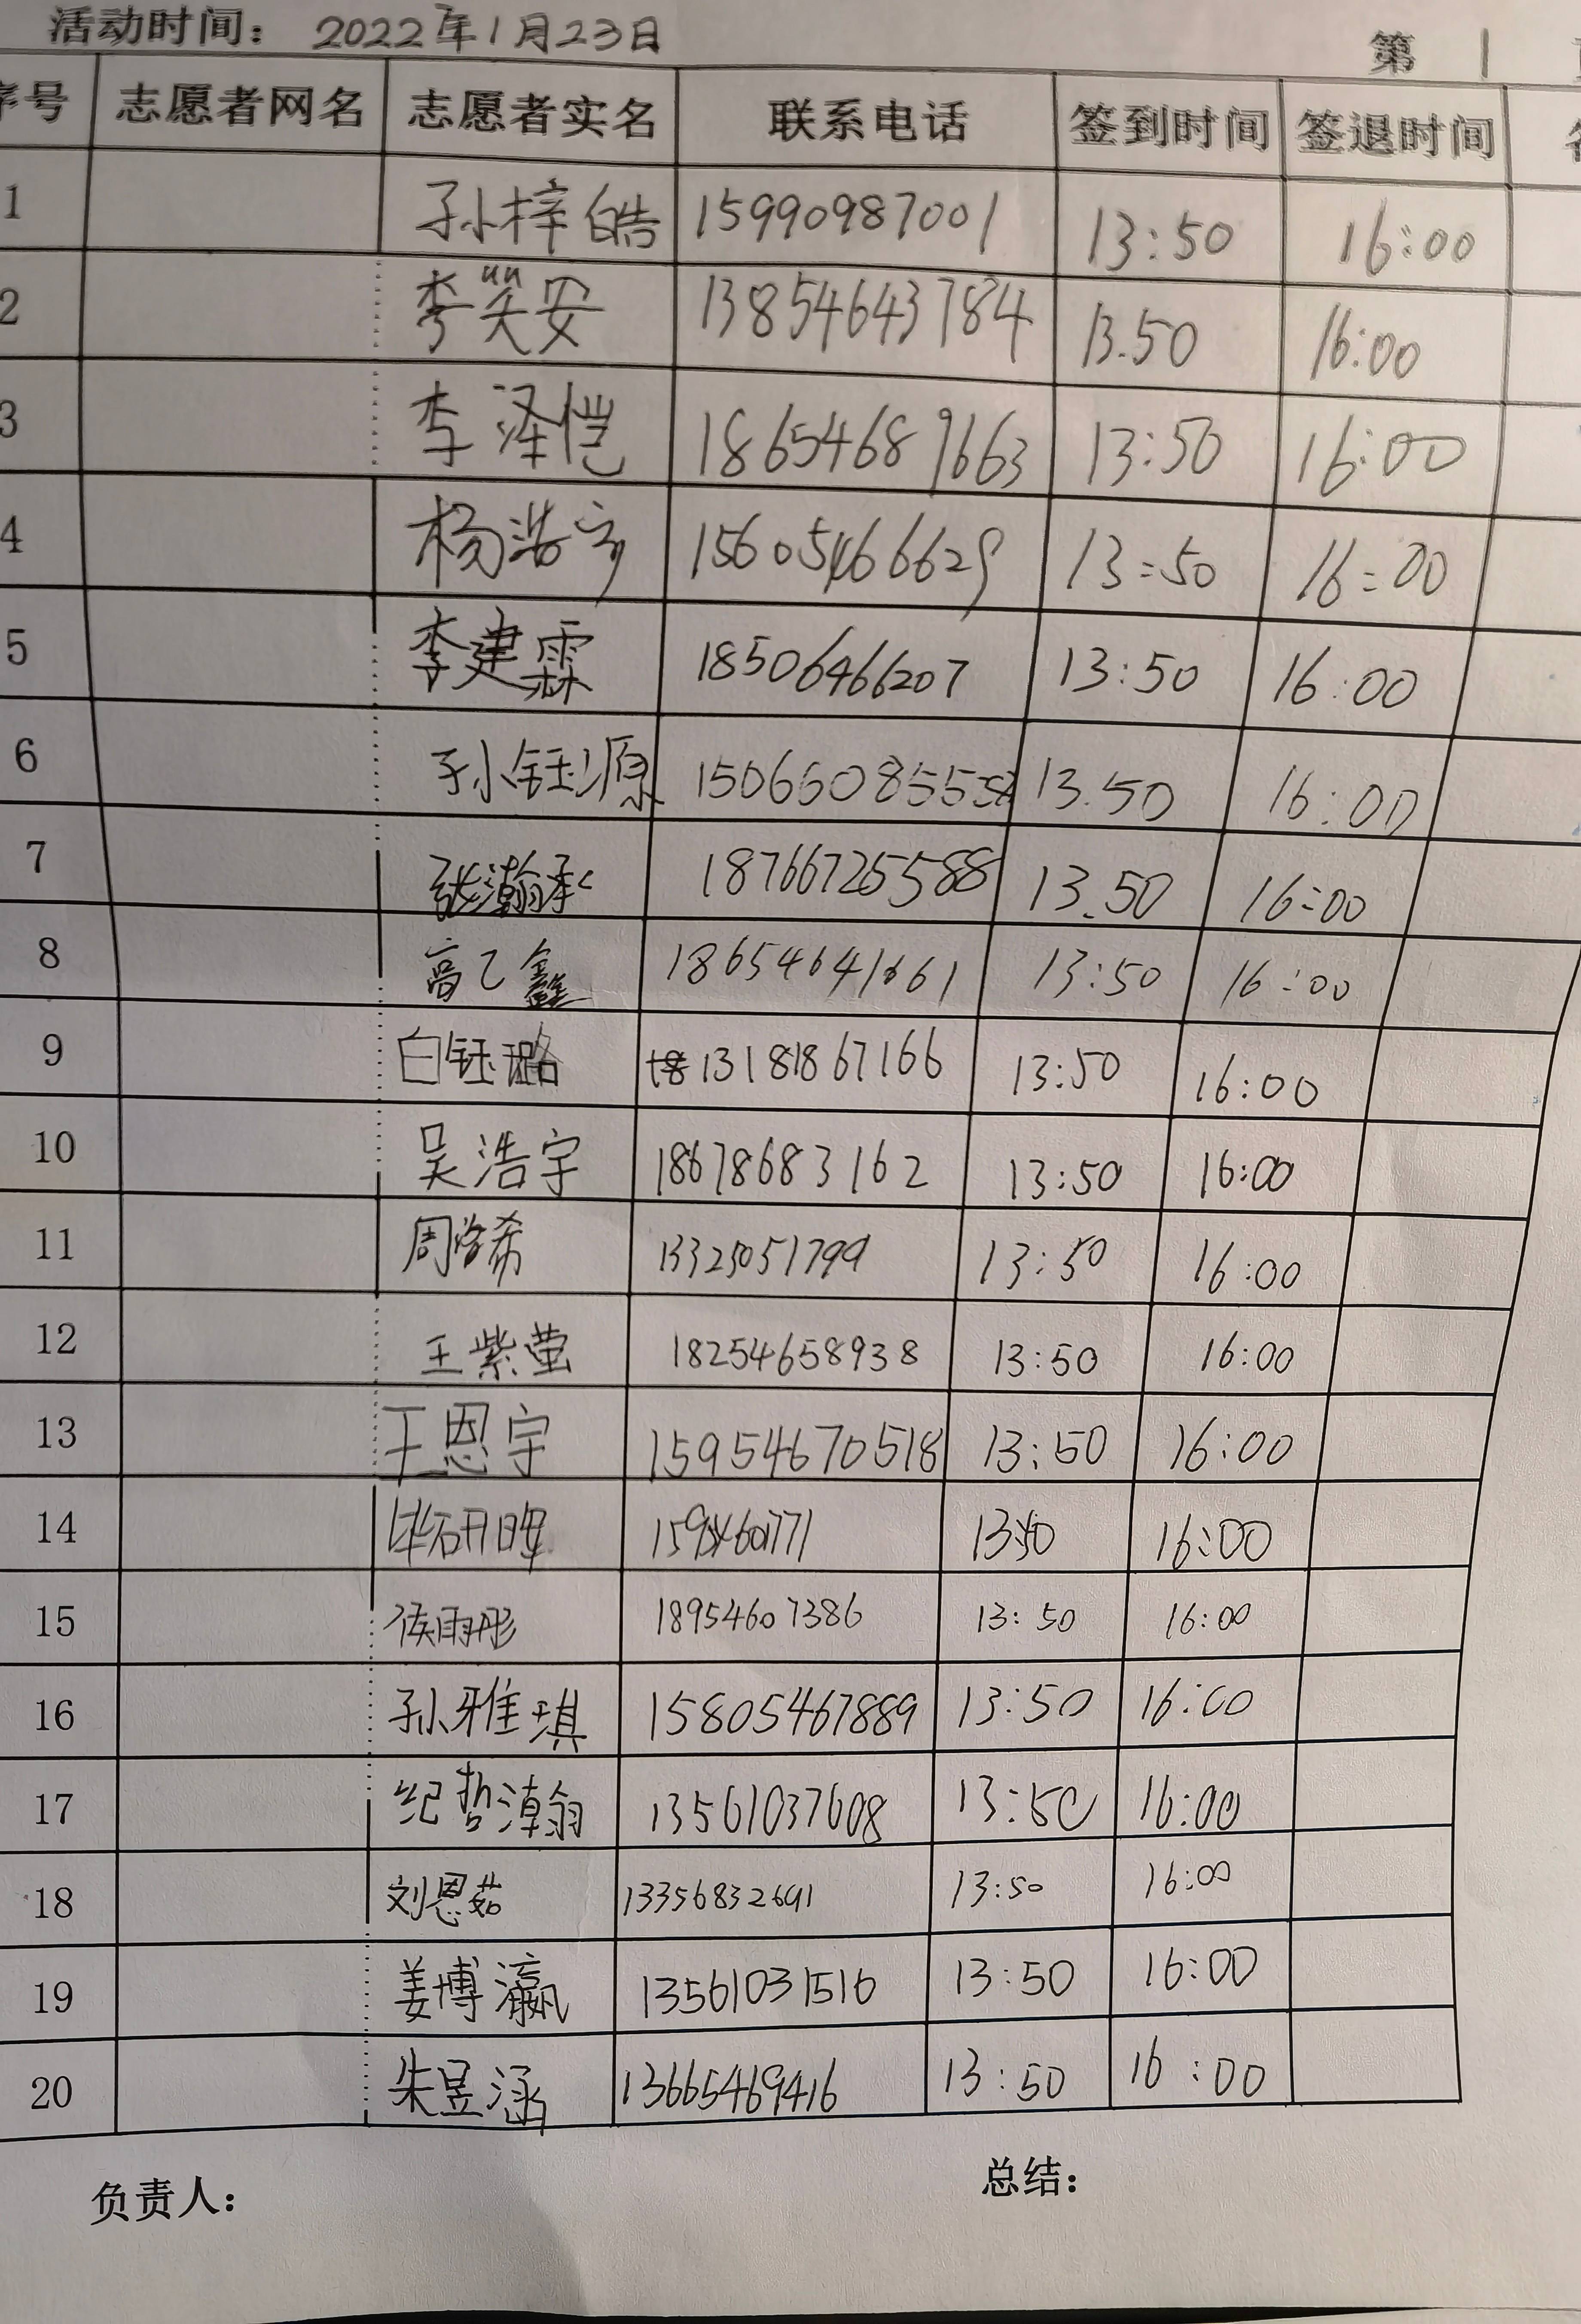 活动时间： 2022年1月23日 第 1
序号 志愿者网名 志愿者实名 联系电话 签到时间 签退时间
1 孙梓皓 15990987001 13:50 16:00
2 李笑安 13854643784 13.50 16:00
3 李泽恺 18654689663 13:50 16:00
4 杨浩宇 15605466629 13:50 16:00
5 李建霖 18506466207 13:50 16:00
6 孙钰源 13.50 16:00
7 张瀚承 18766725588 13.50 16:00
8 高乙鑫 18654641661 13:50 16:00
9 白钰璐 13181867166 13:50 16:00
10 吴浩宇 18678683162 13:50 16:00
11 周 希 13325051799 13:50 16:00
12 王紫萤 18254658938 13:50 16:00
13 王恩宇 15954670518 13:50 16:00
14 毕研晖 13:50 16:00
15 侯雨彤 18954607386 13:50 16:00
16 孙雅琪 15805467889 13:50 16:00
17 纪哲瀚 13561037608 13:50 16:00
18 刘恩茹 13356832691 13:50 16:00
19 姜博瀛 13561031516 13:50 16:00
20 朱昱涵 13665469416 13:50 16:00
负责人： 总结：